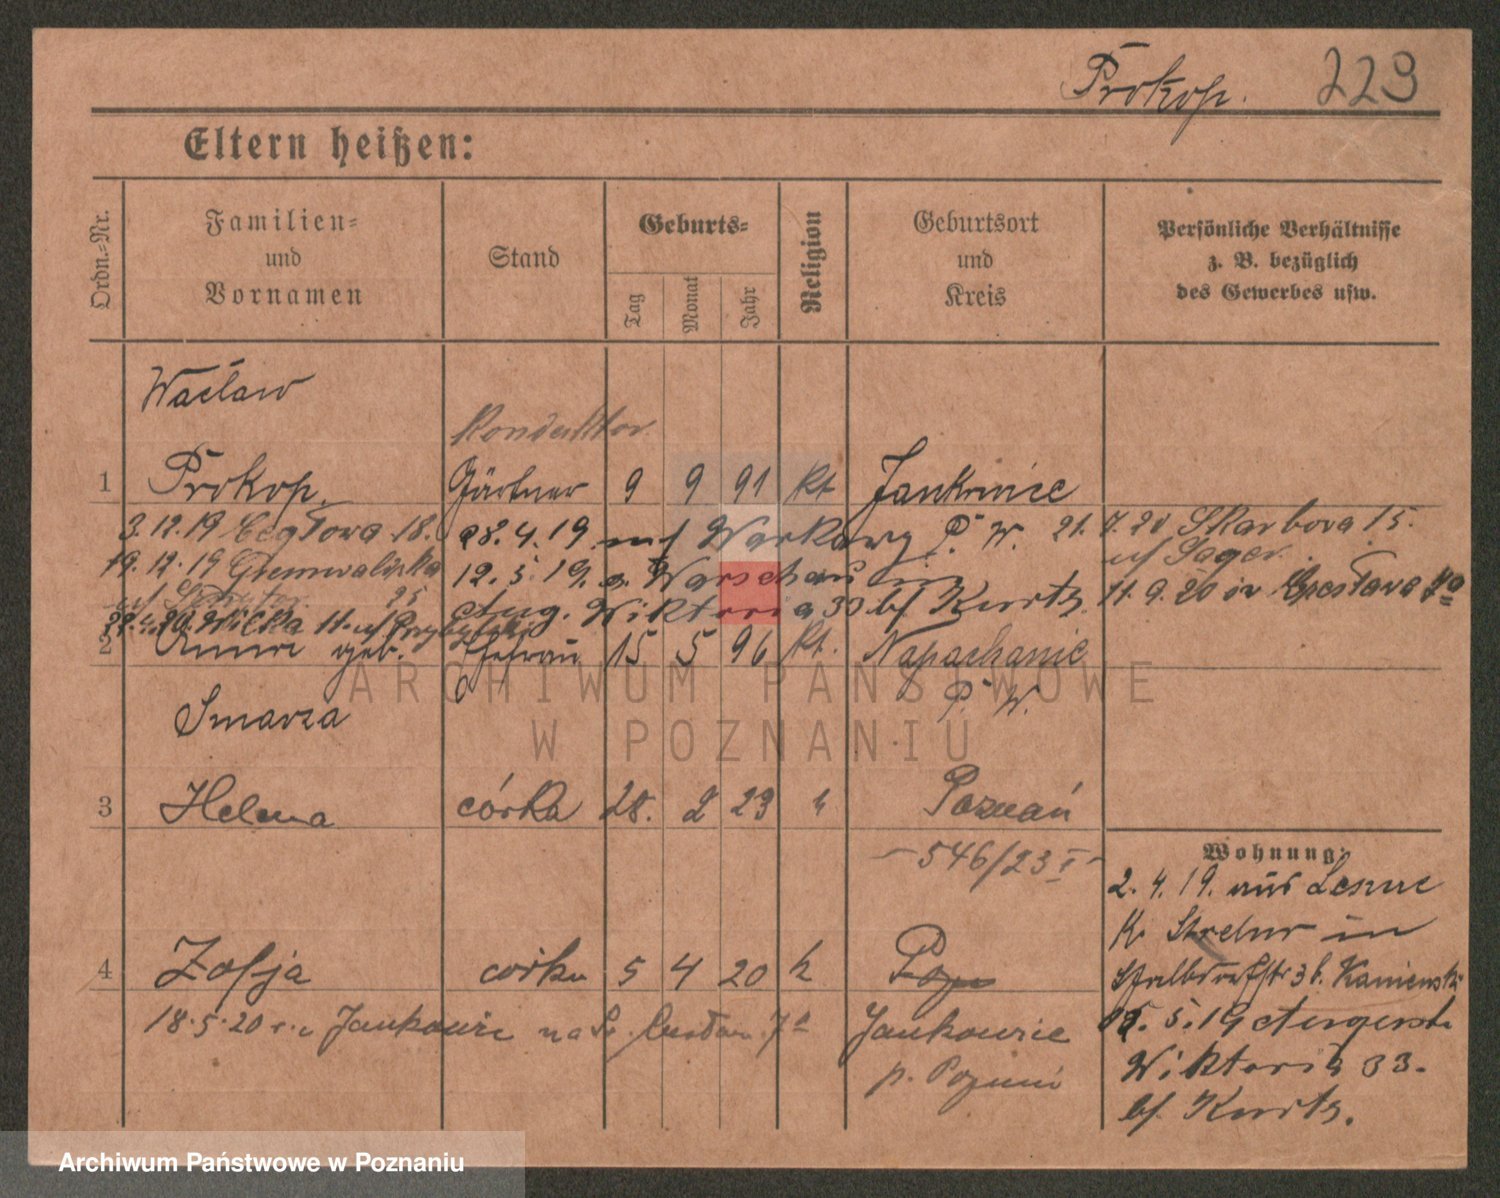 Prokop. 223
Eltern heißen:
Ordn.-Nr.
Familien-
und
Vornamen
Stand
Geburts-
Tag
Monat
Jahr
Religion
Geburtsort
und
Kreis
Persönliche Verhältnisse
z. B. bezüglich
des Gewerbes usw.
Wacław
Konduktor.
1 Prokop. Gärtner 9 9 91 kt Jankowice
3.12.19 Cegłowa 18. 28.4.19. Warkawy P. W. 21. 7. 20 Skarbova 15.
19.12.19 Grunwaldzka 12.5.19. Warschau in
25 Aug. Wiktoria 33 b/ Kurtz. 11. 9. 20
Wilka 11.
2 Anna geb. Ehefrau 15 5 96 kt. Napachanie
P. W.
Smarza
3 Helena córka 28. 2 23 Poznań
546/23 I
Wohnung:
2. 4. 19. aus
K. in
3 b. Kamienski
4 Zofja córka 5 4 20 k
18.5.20 Jankowice na Jankowice
5. 19
Wiktoria 33.
p. Poznań
b/ Kurtz.
ARCHIWUM PAŃSTWOWE
W POZNANIU
Archiwum Państwowe w Poznaniu